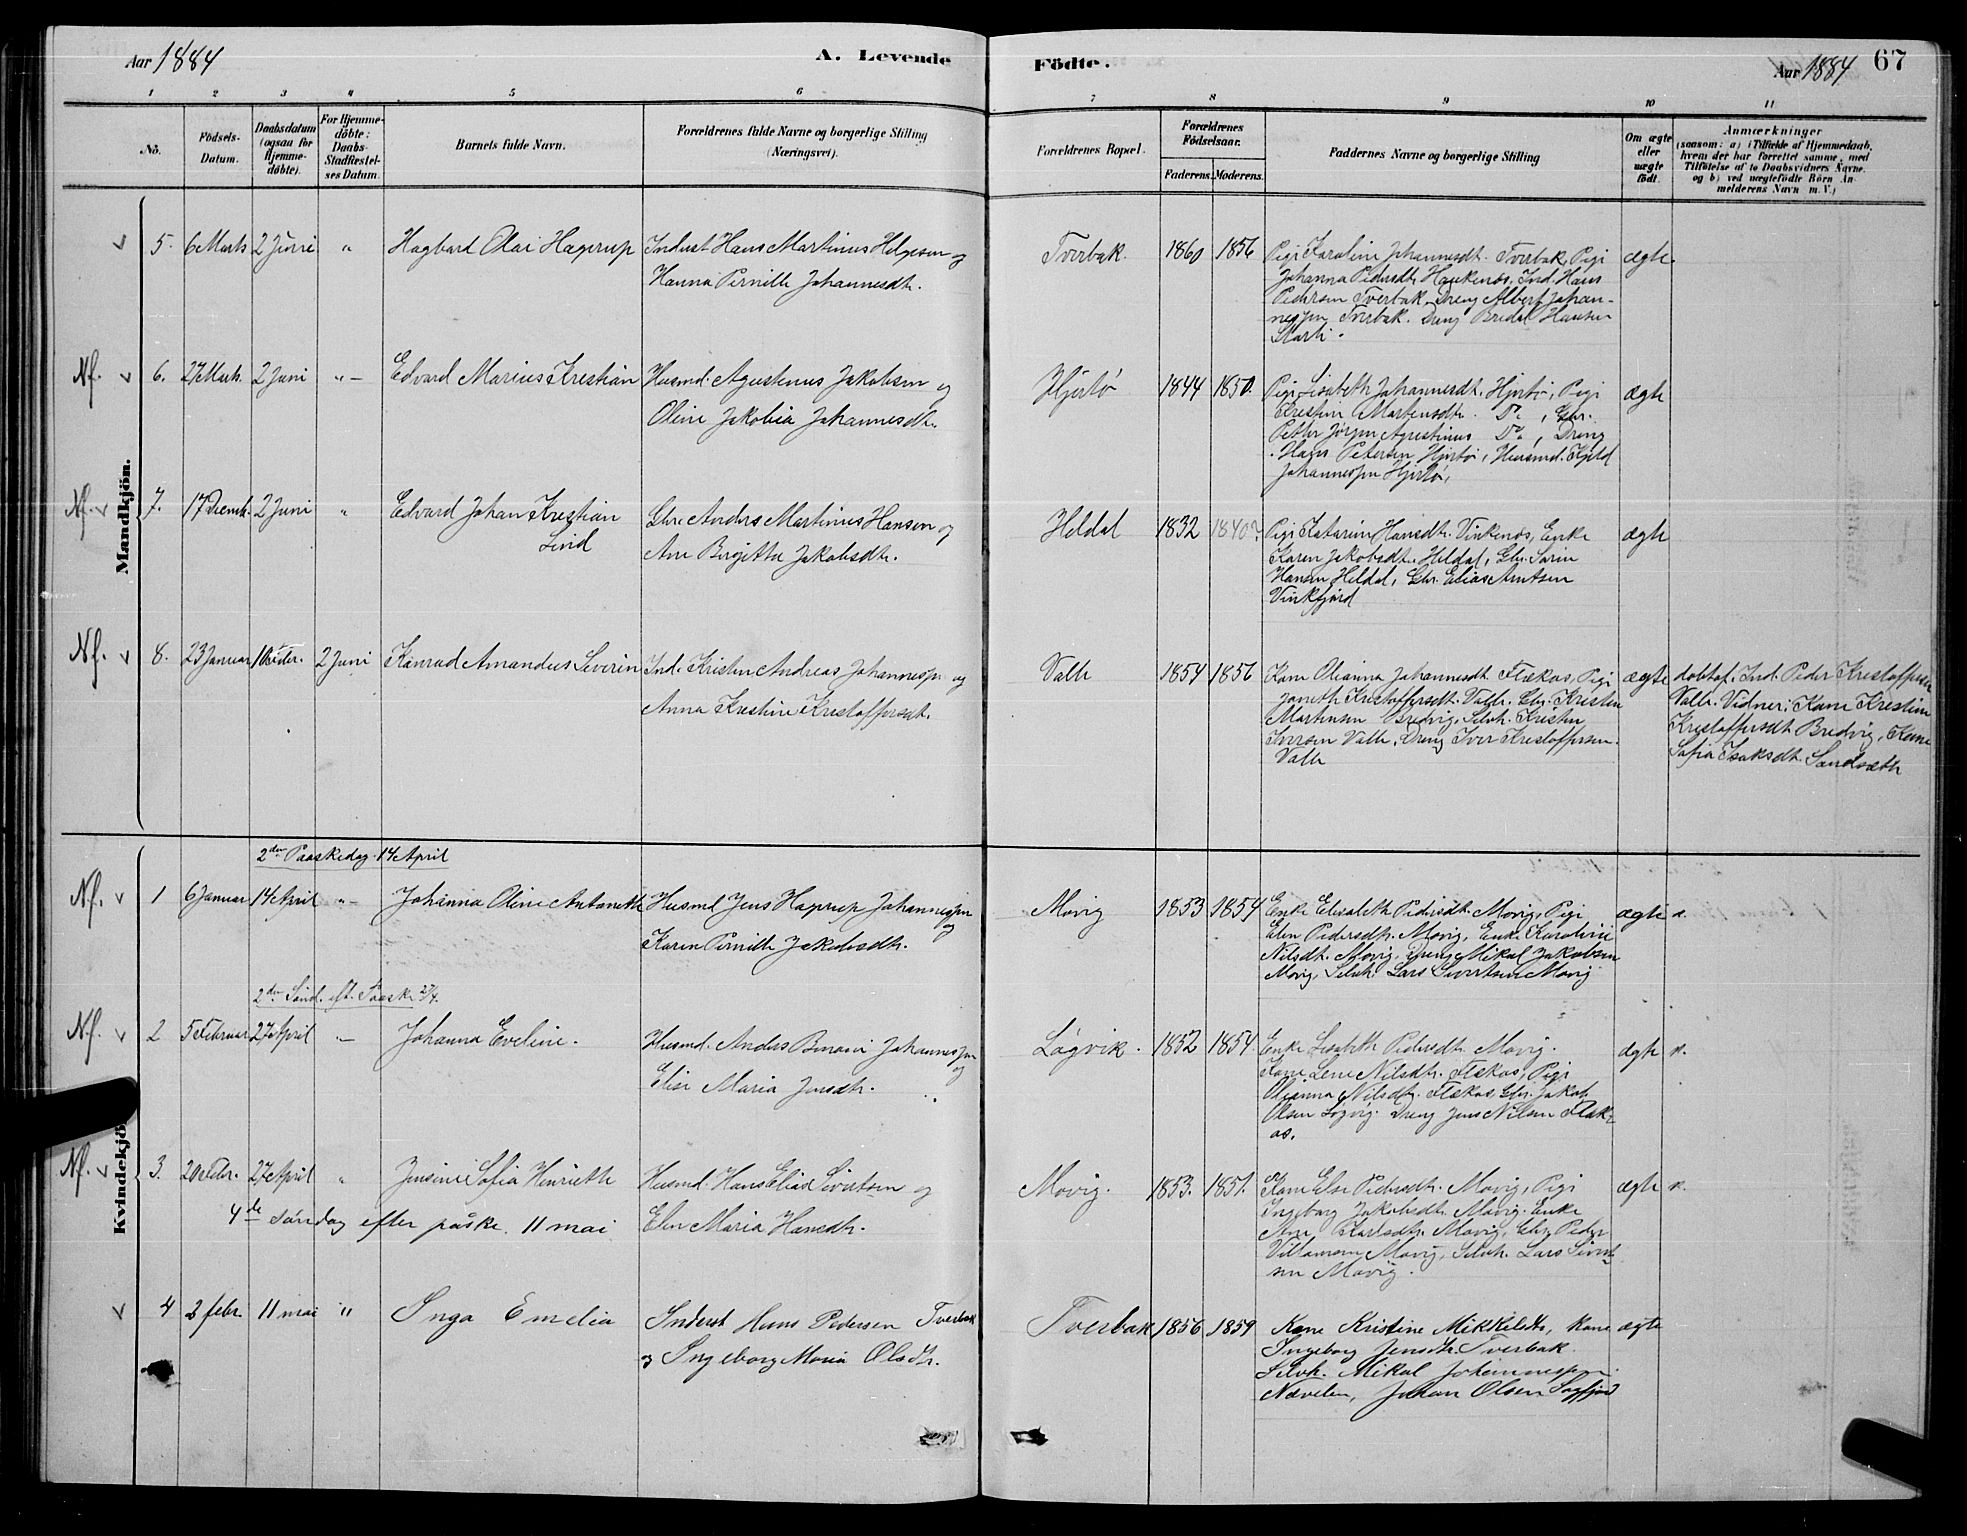 Aar 1884
A. Levende
Födte.
Aar 1884.
67
1 2 3 4 5 6 7 8 9 10 11
No.
Födsels-
Datum.
Daabsdatum
(ogsaa for
Hjemme-
döbte).
For Hjemme-
döbte:
Daabs-
Stadfæstel-
ses Datum.
Barnets fulde Navn.
Forældrenes fulde Navne og borgerlige Stilling
(Næringsvei).
Forældrenes Bopæl.
Forældrenes
Födselsaar.
Faderens. Moderens.
Faddernes Navne og borgerlige Stilling
Om ægte
eller
uægte
födt.
Anmærkninger
(saasom: a) i Tilfælde af Hjemmedaab,
hvem der har forrettet samme, med
Tilföielse af to Daabsvidners Navne.
og b) ved uægtefödte Börn An-
melderens Navn m. V.)
Mandkjön.
5. 6 Marts 2 Juni " Hagbard Olai Hagerup
Inderst Hans Martinus Helgesen og
Hanna Pernille Johannesdtr.
Tverbak. 1860 1856
Pige Karoline Johannesdt. Tverbak, Pige
Johanna Pedersdt. Haukenæs, Ind. Hans
Pedersen Tverbak, Dreng Albert Johan-
nessen Tverbak. Dreng Bredal Hansen
ægte.
Nf. 6. 27 Marts. 2 Juni "- Edvard Marius Kristian
Husmd. Agustinus Jakobsen og
Oline Jakobia Johannesdtr.
Hjertø 1844 1850.
Pige Lisabeth Johannesdt. Hjertø, Pige
Krestine Martensdtr. Do, Gbr.
Petter Jørgen Agustinus Do, Dreng
Hans Petersen Hjertø, Husmd. 
Johannessen Hjertø,
ægte
Nf. 7. 17 Decemb. 2 Juni " Edvard Johan Kristian
Lind
Gbr. Anders Martinus Hansen og
Ane Birgitta Jakobsdtr.
Heldal 1832 1840?
Pige Katarine Hansdtr. Vinkenæs, Enke
Karen Jakobsdtr. Heldal, Gbr. Sørine
Hansen Heldal, Gbr. Elias Arntsen
Vinkfjord
ægte
Nf. 8. 23 Januar 2 Juni Konrad Amandus Severin
Ind. Kristen Andreas Johannessen og
Anna Kristine Kristoffersdt.
Valle 1854 1856
Kone Olianna Johannesdt. Flækas, Pige
Janeth Kristoffersdt. Valle. Gbr. Kristen
Martinsen Bredvig, Selvh. Kristen
Iversen Valle, Dreng Iver Kristoffersen.
Valle
ægte
døbt af. Ind. Peder Kristoffersen
Valle. Vidner: Kone Krestine
Kristoffersdt. Bredvig, Kone
Sofia Isaksdt. Sandsæth
Kvindekjö
2den Paaskedag. 14 April
Nf. 1 6 Januar 14 April "- Johanna Oline Antoneth
Husmd. Jens Hagerup Johannessen
og
Karen Pernille Jakobsdtr.
Movig 1853 1854
Enke Elisabeth Pedersdt. Movig, Pige
Elen Pedersdtr. Movig, Enke Karoline
Nilsdt. Movig. Dreng Mikal Jakobsen
Movig, Selvh. Lars Sivertsen Movig.
ægte
2den Sønd. eft. Paaske 27/4.
Nf. 2 5 Februar 27 April "- Johanna Eveline.
Husmd. Anders Benoni Johannessen
og
Elise Maria Jensdtr.
Løgvik. 1852 1854
Enke Lisabeth Pedersdt. Movig.
Kone Lene Nilsdtr. Flækas, Pige
Olianna Nilsdtr. Flækas, Gbr. Jakob
Olsen Løgvig. Dreng Jens Nilsen Flæk-
as.
ægte
Nf. 3. 20 Febr. 27 April " Jensine Sofia Henriette
Husmd. Hans Elias Sivertsen og
Elen Maria Hansdtr.
Movig. 1853. 1851.
Kone Else Pedersdtr. Movig, Pige
Ingeborg Jakobsdt. Movig. Enke
Ane Karlsdtr. Movig, Gbr. Peder
Villumsen Movig, Selvh. Lars Sivert-
sen Movig.
ægte
4de søndag efter påske. 11 mai
4 2 febr. 11 mai " Inga Emelia
Inderst Hans Pedersen Tverbak
og Ingeborg Maria Olsdtr.
Tverbak 1856 1859
Kone Kristine Mikkelsdtr, kone
Ingeborg Jensdtr. Tverbak.
Selvh. Mikal Johannessen
Nævelen, Johan Olsen Sagfjord
ægte